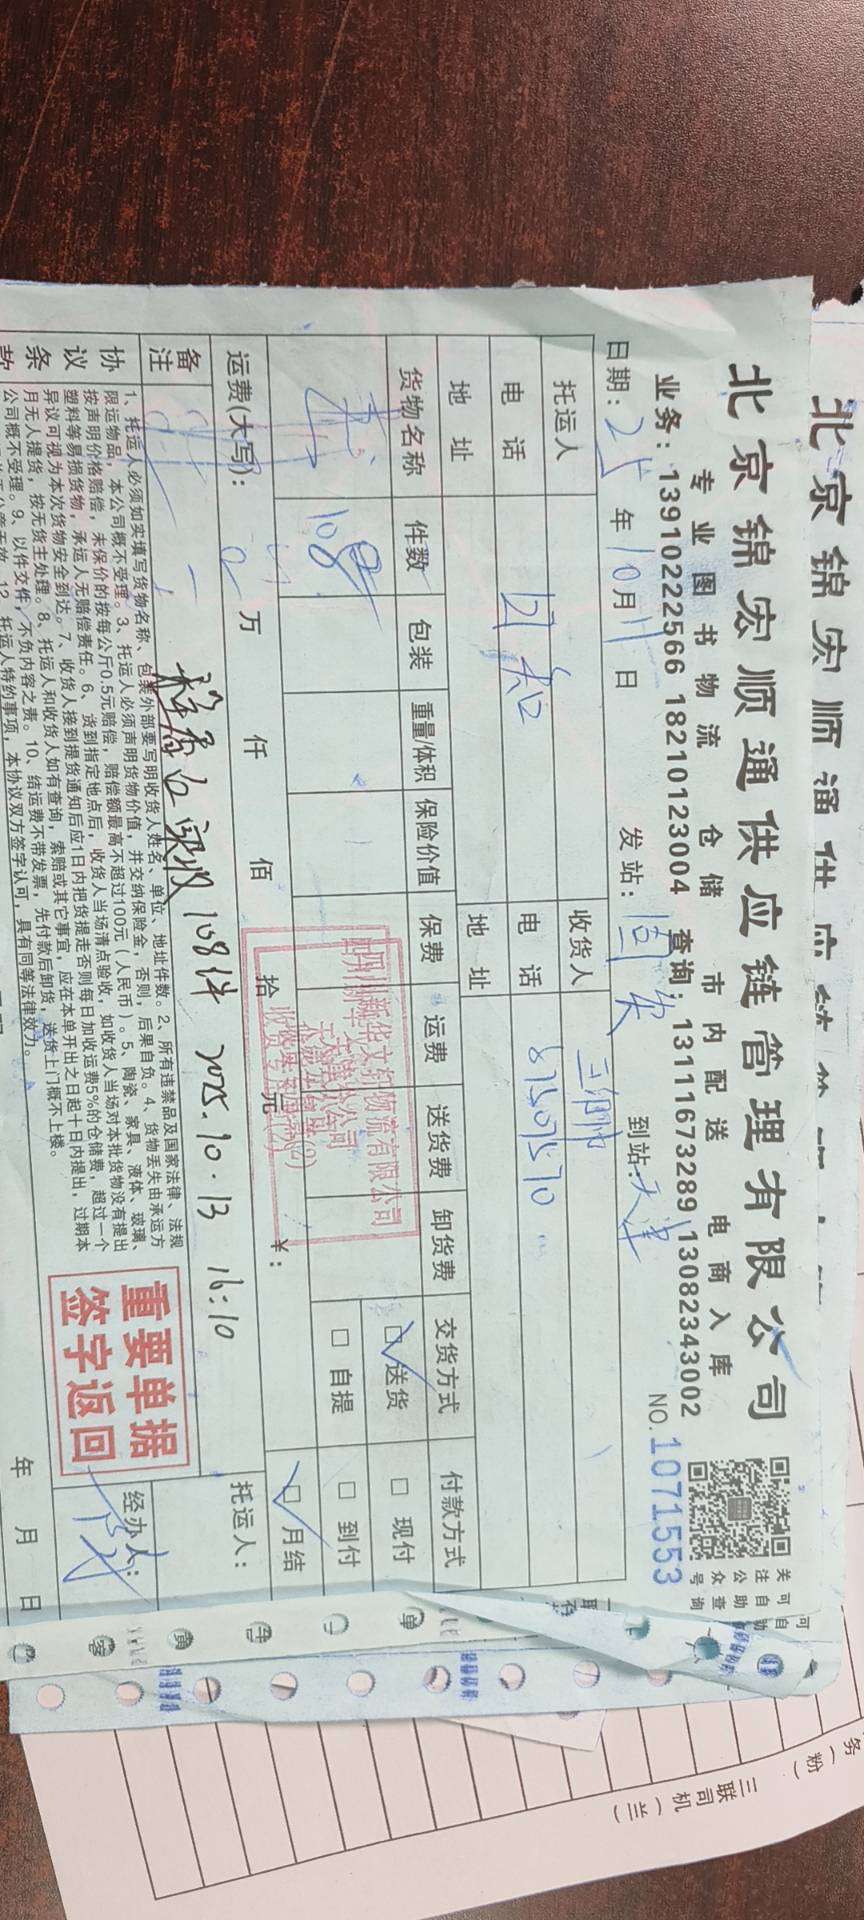 北京锦宏顺通供应链管理有限公司
北京锦宏顺通供应链管理有限公司
专业图书物流 仓储 市内配送 电商入库
业务：13910222566 18210123004 查询：13111673289 13082343002
关注公众号
可自助查询
NO.1071553
日期：25年10月11日 发站： 到站：天津
托运人 收货人
电话 电话
地址 地址
货物名称 件数 包装 重量/体积 保险价值 保费 运费 送货费 卸货费 交货方式 付款方式
书 108
☑送货 □现付
□自提 □到付
☑月结
四川新华文轩物流有限公司
天津分公司
运费(大写)： 万 仟 佰 拾 元 ¥：
托运人：
备注
实收108件 2025.10.13 16:10
协议条款
1、托运人必须如实填写货物名称、包装外部要写明收货人姓名、单位、地址件数。2、所有违禁品及国家法律、法规
限运物品，本公司概不受理。3、托运人必须声明货物价值，并交纳保险金，否则，后果自负。4、货物丢失由承运方
按声明价格赔偿，未保价的按每公斤0.5元赔偿，赔偿额最高不超过100元（人民币）。5、陶瓷、家具、液体、玻璃、
塑料等易损货物，承运人无赔偿责任。6、货到指定地点后，收货人当场清点验收，如收货人当场对本批货物没有提出
异议可视为本次货物安全到达。7、收货人接到提货通知后应1日内把货提走否则每日加收运费5%的仓储费，超过一个
月无人提货，按无货主处理。8、托运人和收货人如有查询，索赔或其它事宜，应在本单开出之日起十日内提出，过期本
公司概不受理。9、以件交件，不负内容之责。10、结运费不带发票，先付款后卸货，送货上门概不上楼。
12、托运人特约事项，本协议双方签字认可，具有同等法律效力。
重要单据
签字返回
经办人：
年 月 日
三联司机（兰）